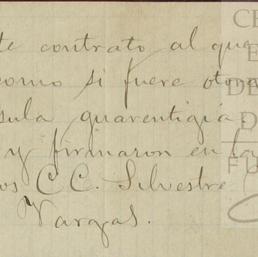 te contrato al que
como si fuere otor
sula guarentigia
y firmaron en la
os C C. Silvestre
Vargas.
CE
E
DE
D
FU